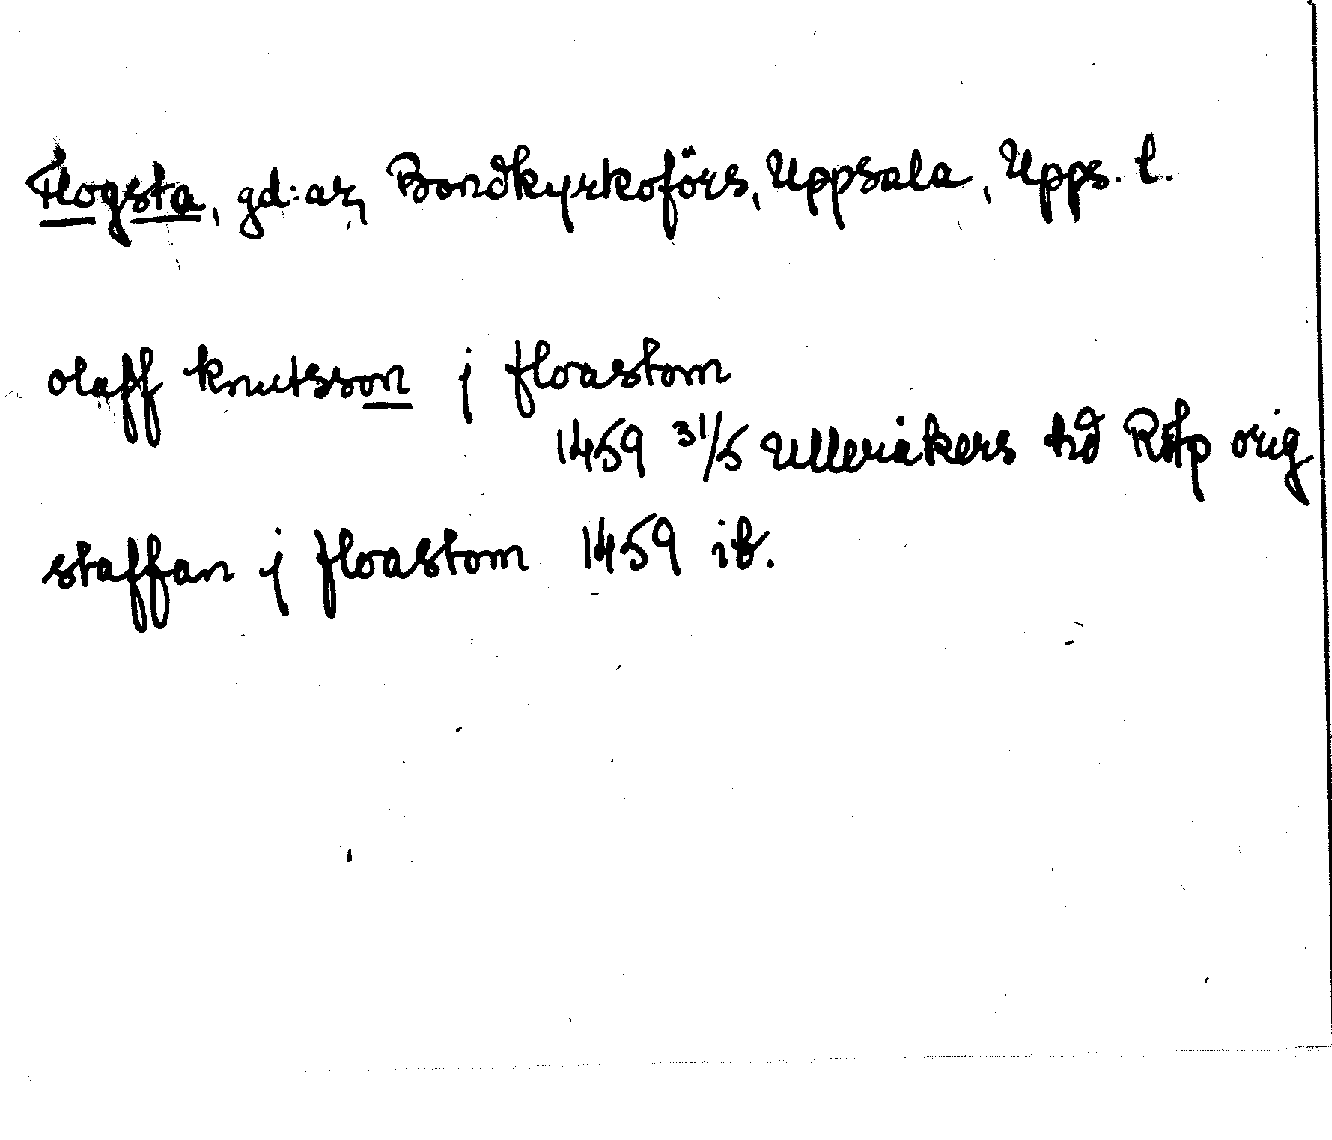 Flogsta, gd:ar, Bondkyrkoförs, Uppsala, Upps. l.
olaff knutsson j floastom
1459 31/5 Ulleråkers hd Rap orig
staffan j floastom 1459 ib.